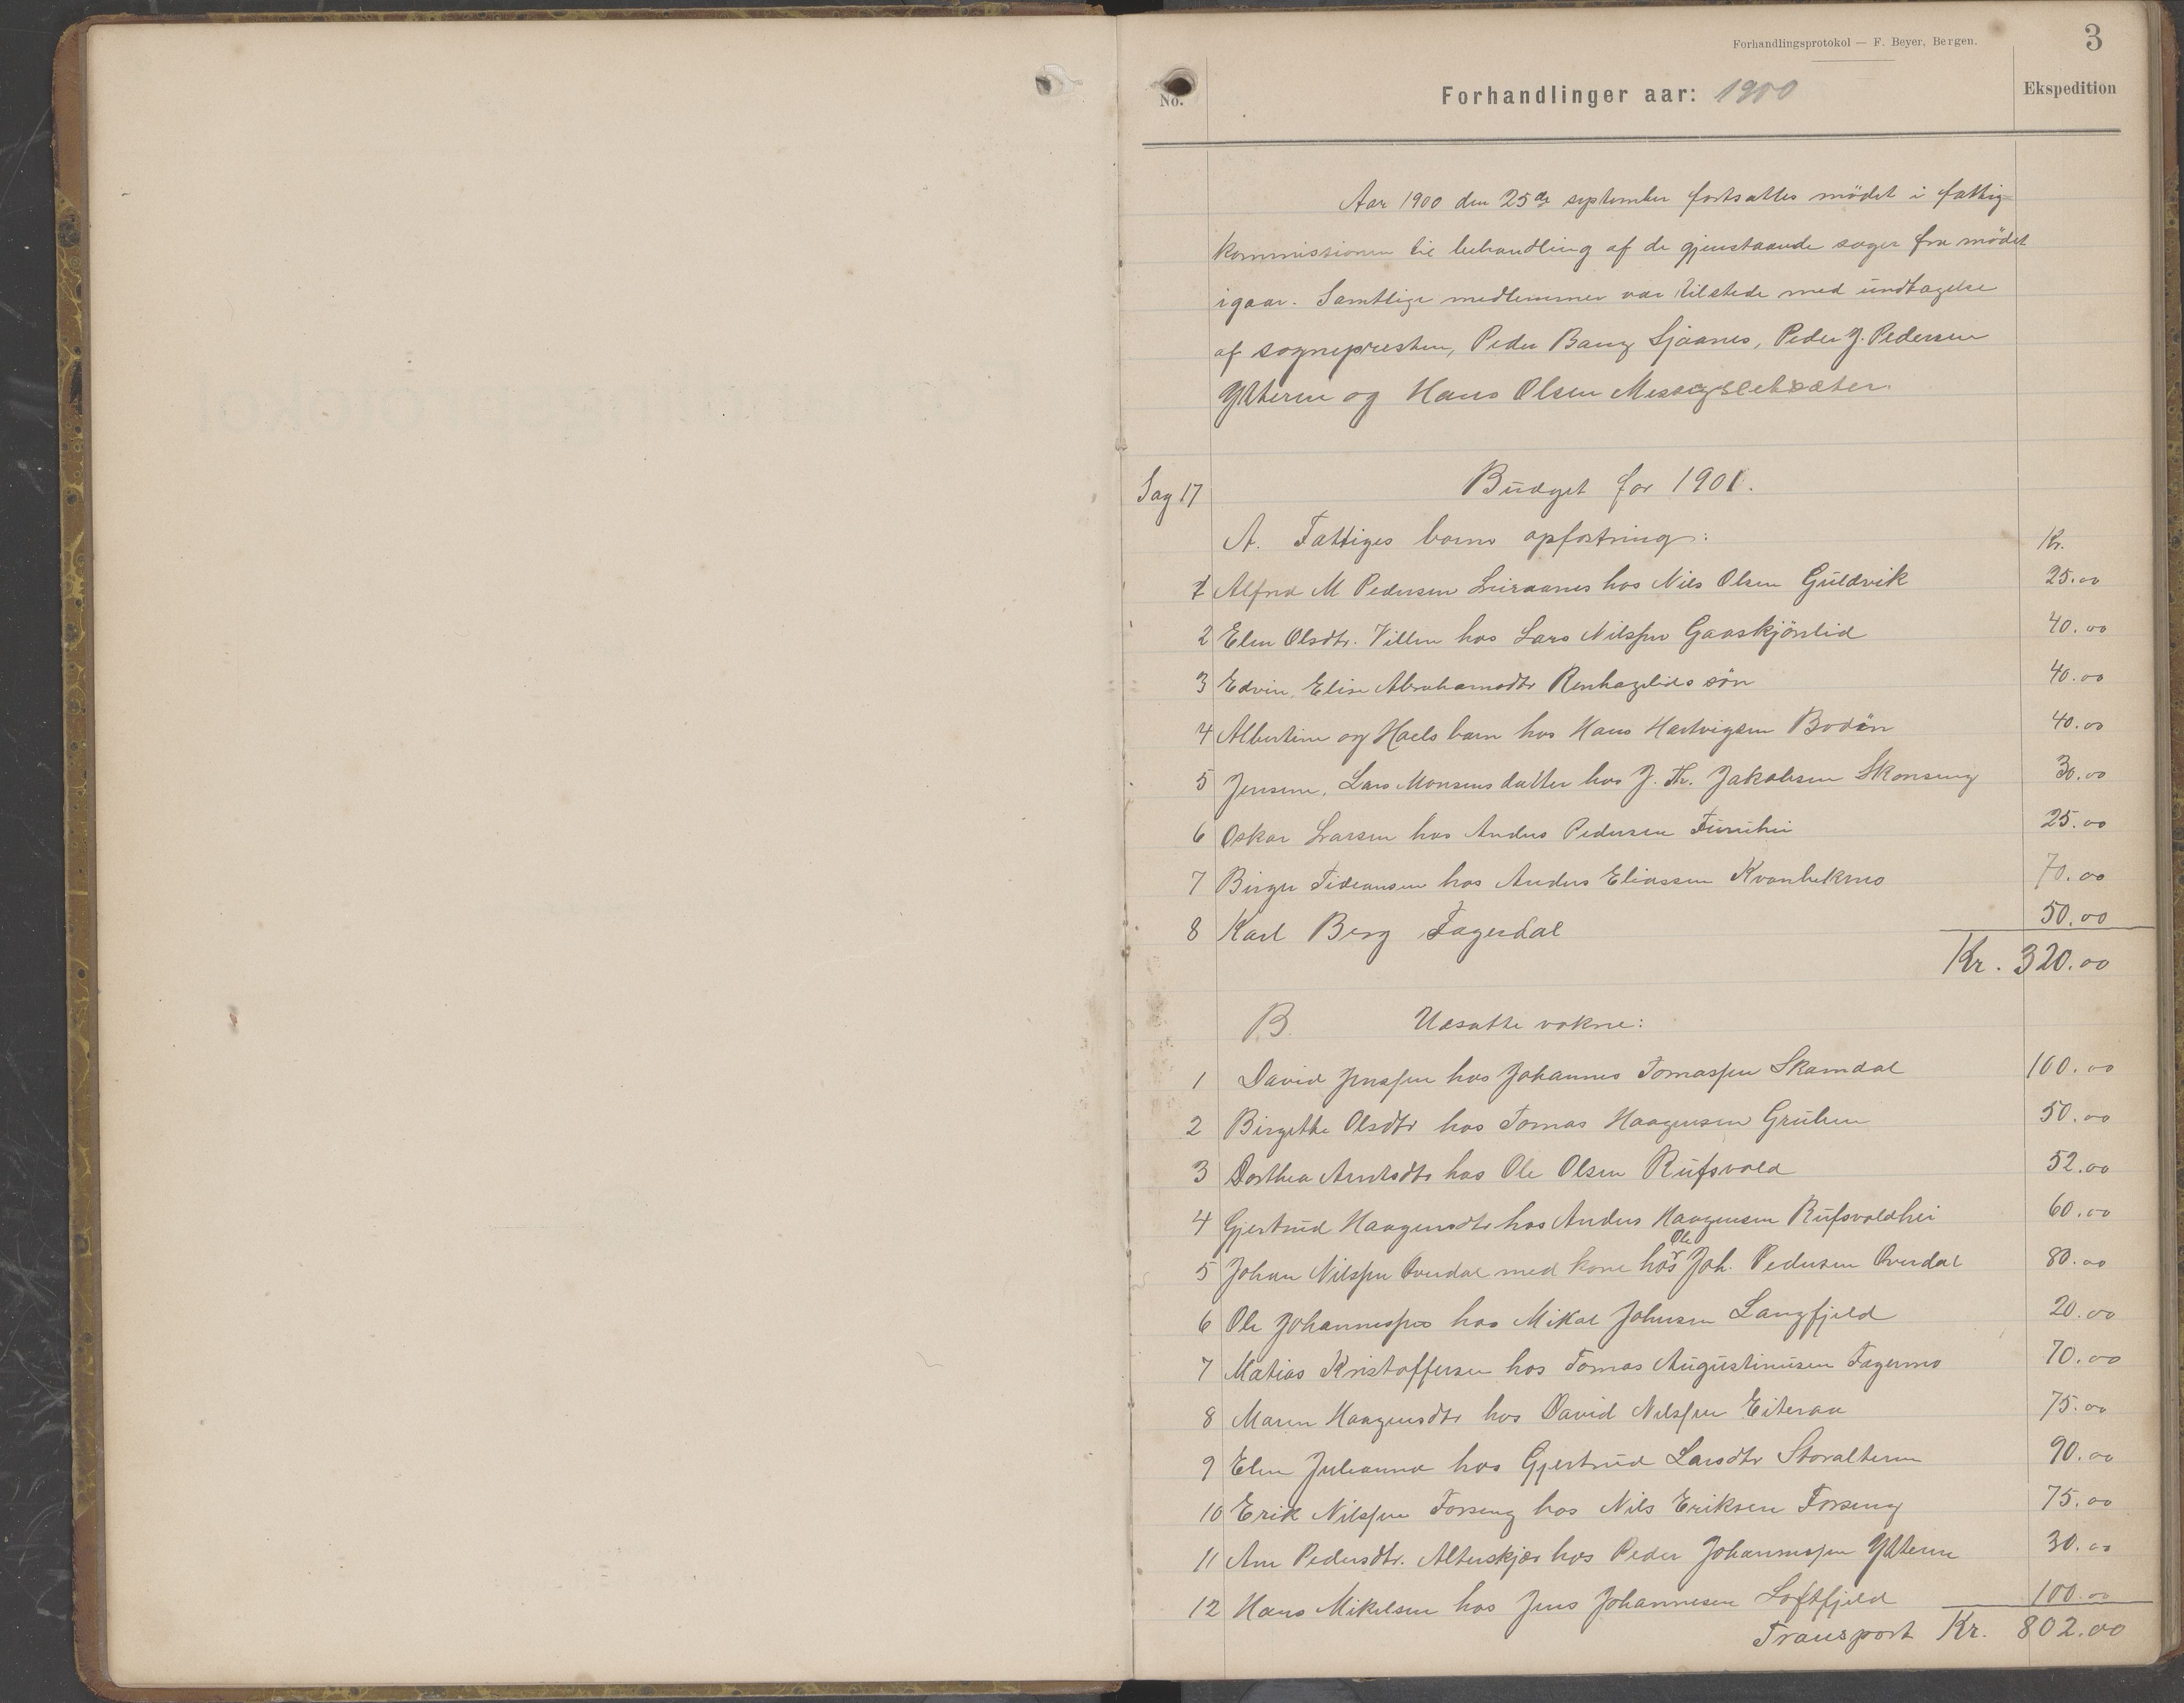 Forhandlingsprotokol — F. Beyer, Bergen.
3
No.
Forhandlinger aar: 1900
Ekspedition
Aar 1900 den 25de september fortsattes mödet i fattig-
kommissionen til behandling af de gjenstaaende sager fra mödet
igaar. Samtlige medlemmer var tilstede med undtagelse
af sognepresten, Peder Bang Sjaanes, Peder J. Pedersen
Ytteren og Hans Olsen
Sag 17 Budget for 1901.
A. Fattiges barns opfostring: Kr.
1 Alfred M Pedersen hos Nils Olsen Guldvik 25.00
2 Elen Olsdtr. Villen hos Lars Nilssen Gaaskjönlid 40.00
3 Edvin, Elise Abrahamsdtr Renhagelids sön 40.00
4 Albertine og Haels barn hos Hans Hartvigsen Bodön 40.00
5 Jensine, Lars Monsens datter hos J. Th. Jakobsen Skonseng 30.00
6 Oskar Larsen hos Anders Pedersen Furuhei 25.00
7 Birger Tideansen hos Anders Eliassen 70.00
8 Karl Berg Fagerdal 50.00
Kr. 320.00
B. Udsatte voksne:
1 David Jenssen hos Johannes Tomassen Skamdal 100.00
2 Birgitte Olsdtr hos Tomas Haagensen Gruben 50.00
3 Dorthea Arntsdtr hos Ole Olsen Rufsvold 52.00
4 Gjertrud Haagensdtr hos Anders Haagensen Rufsvoldhei 60.00
Ole
5 Johan Nilssen Överdal med kone hos Joh. Pedersen Överdal 80.00
6 Ole Johannessen hos Mikal Johnsen Langfjeld 20.00
7 Matias Kristoffersen hos Tomas Augustinusen Fagermo 70.00
8 Maren Haagensdtr hos David Nilssen Eiteraa 75.00
9 Elen Julianna hos Gjertrud Larsdtr Storalteren 90.00
10 Erik Nilssen Forseng hos Nils Eriksen Forseng 75.00
11 Ane Pedersdtr. Alterskjær hos Peder Johannessen Ytteren 30.00
12 Hans Mikelsen hos Jens Johannesen Loftfjeld 100.00
Transport Kr. 802.00